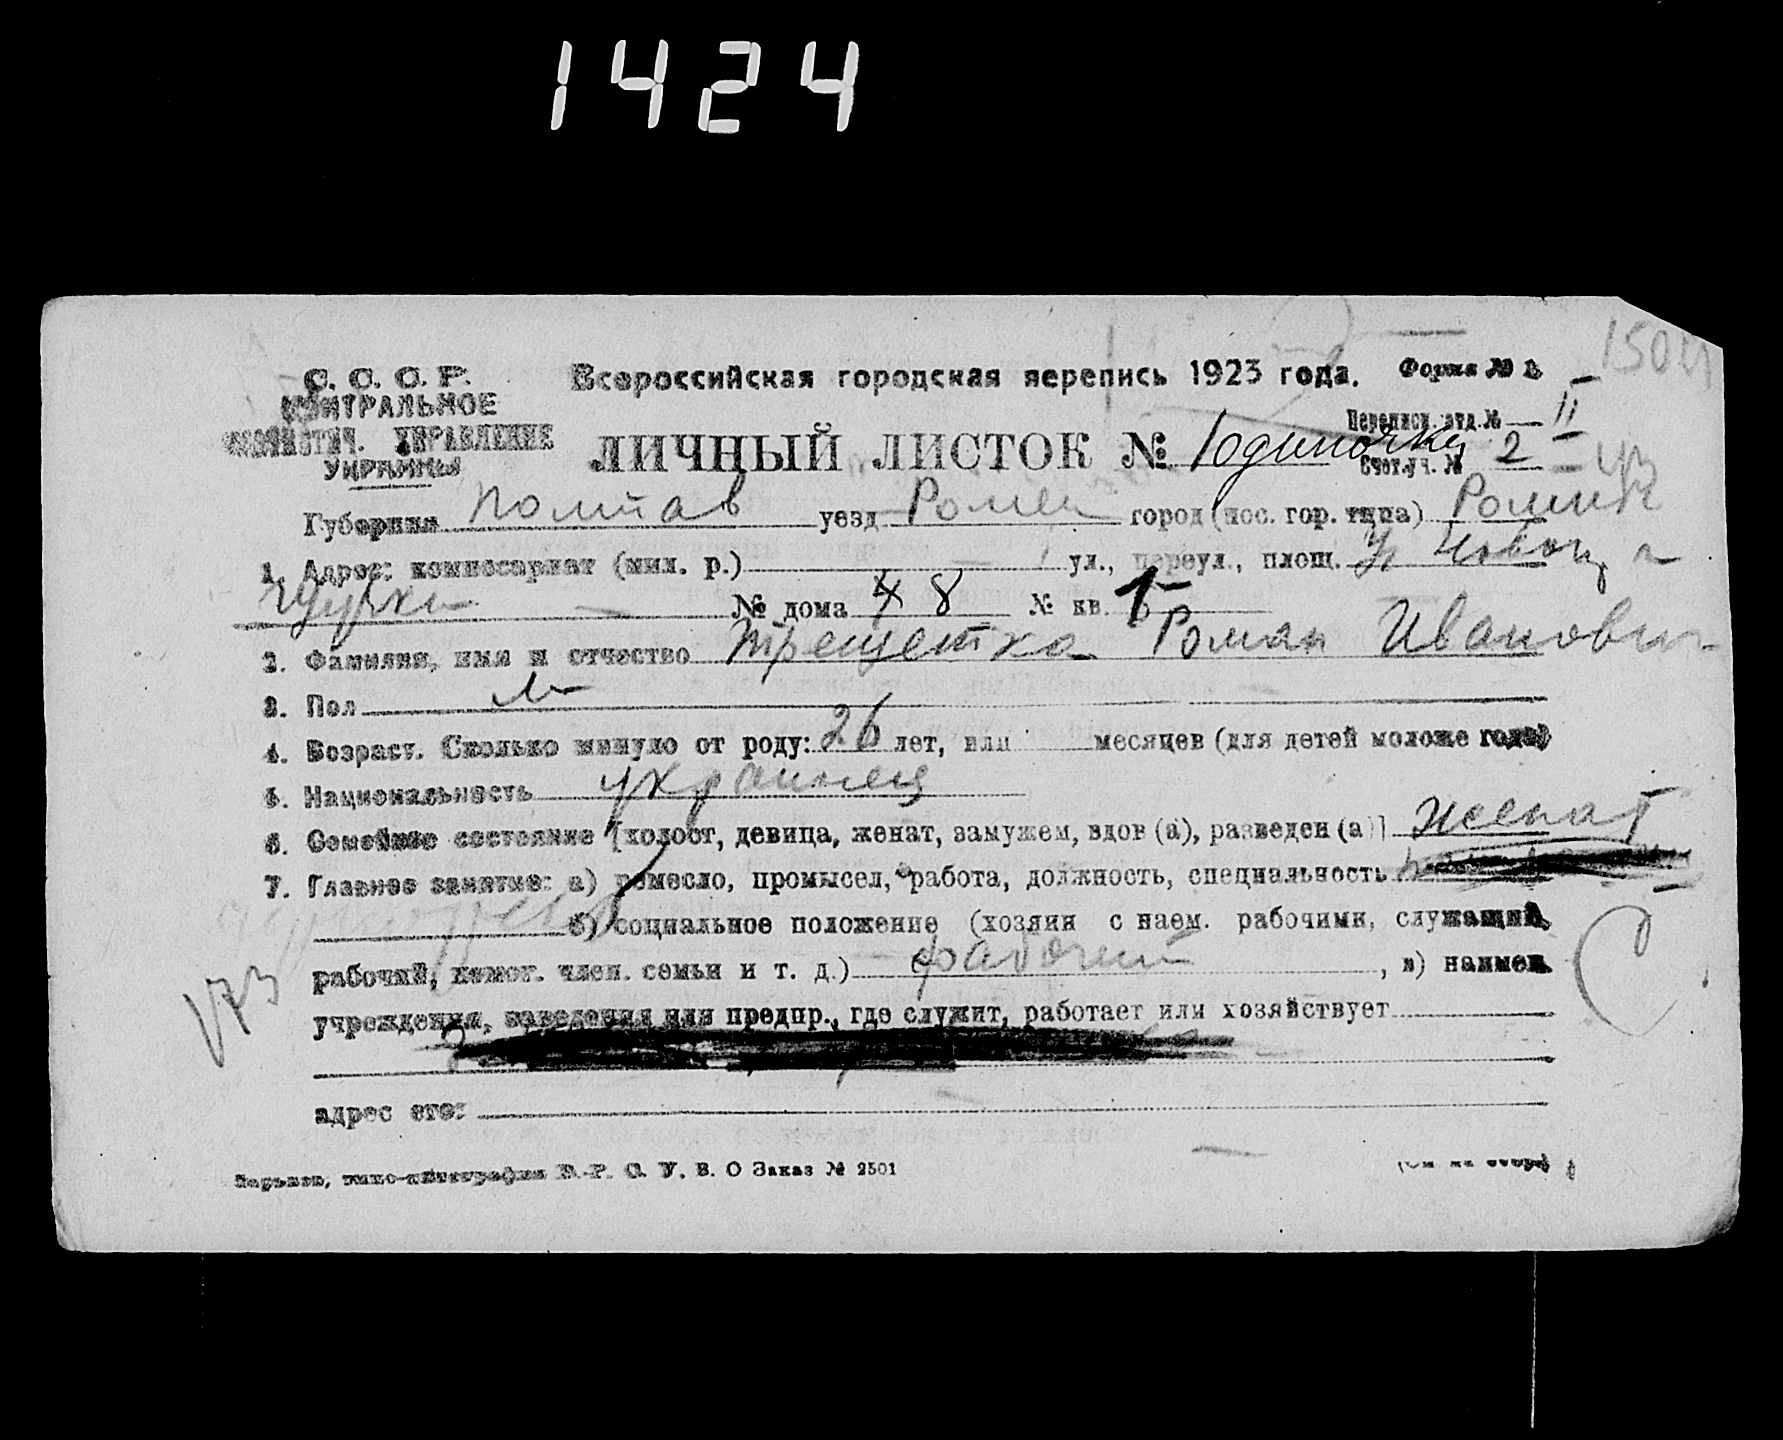 1424
С. С. С. Р.
ЦЕНТРАЛЬНОЕ
СТАТИСТИЧ. УПРАВЛЕНИЕ
УКРАИНЫ
Всероссийская городская перепись 1923 года.
Форма № 1
150
Переписн. отд. № II
ЛИЧНЫЙ ЛИСТОК № 1 одиночку
Счет. уч. № 2
43
Губерния Полтав уезд Ромен город (пос. гор. типа) Ромны
1. Адрес: комиссариат (мил. р.) ул., переул., площ.
№ дома 48 № кв. 1
2. Фамилия, имя и отчество Трещетка Роман Иванович
3. Пол М
4. Возраст. Сколько минуло от роду: 26 лет, или месяцев (для детей моложе года)
5. Национальность украинец
6. Семейное состояние [холост, девица, женат, замужем, вдов (а), разведен (а)] женат
7. Главное занятие: а) ремесло, промысел, работа, должность, специальность
б) социальное положение (хозяин с наем. рабочими, служащий,
рабочий, помог. член. семьи и т. д.) рабочий, в) наимен.
173
учреждения, заведения или предпр., где служит, работает или хозяйствует
адрес его:
Харьков, типо-литография В.-Р. С. У. В. О Заказ № 2501
(См на обор.)